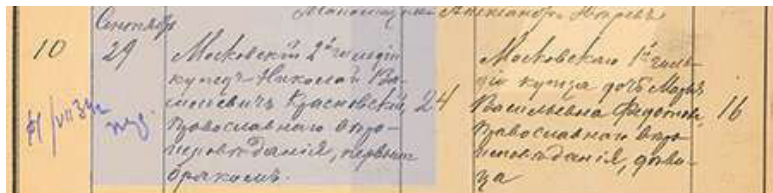 Александръ
Сентябр
10 29 Московскій 2й гильдіи
купецъ Николай Ва-
сильевичъ Красновскій, 24
Православнаго вѣро-
исповѣданія, первымъ
бракомъ.
Московскаго 1й гиль-
діи купца дочь Марья
Васильевна Федотова, 16
Православнаго вѣро-
исповѣданія, дѣви-
ца